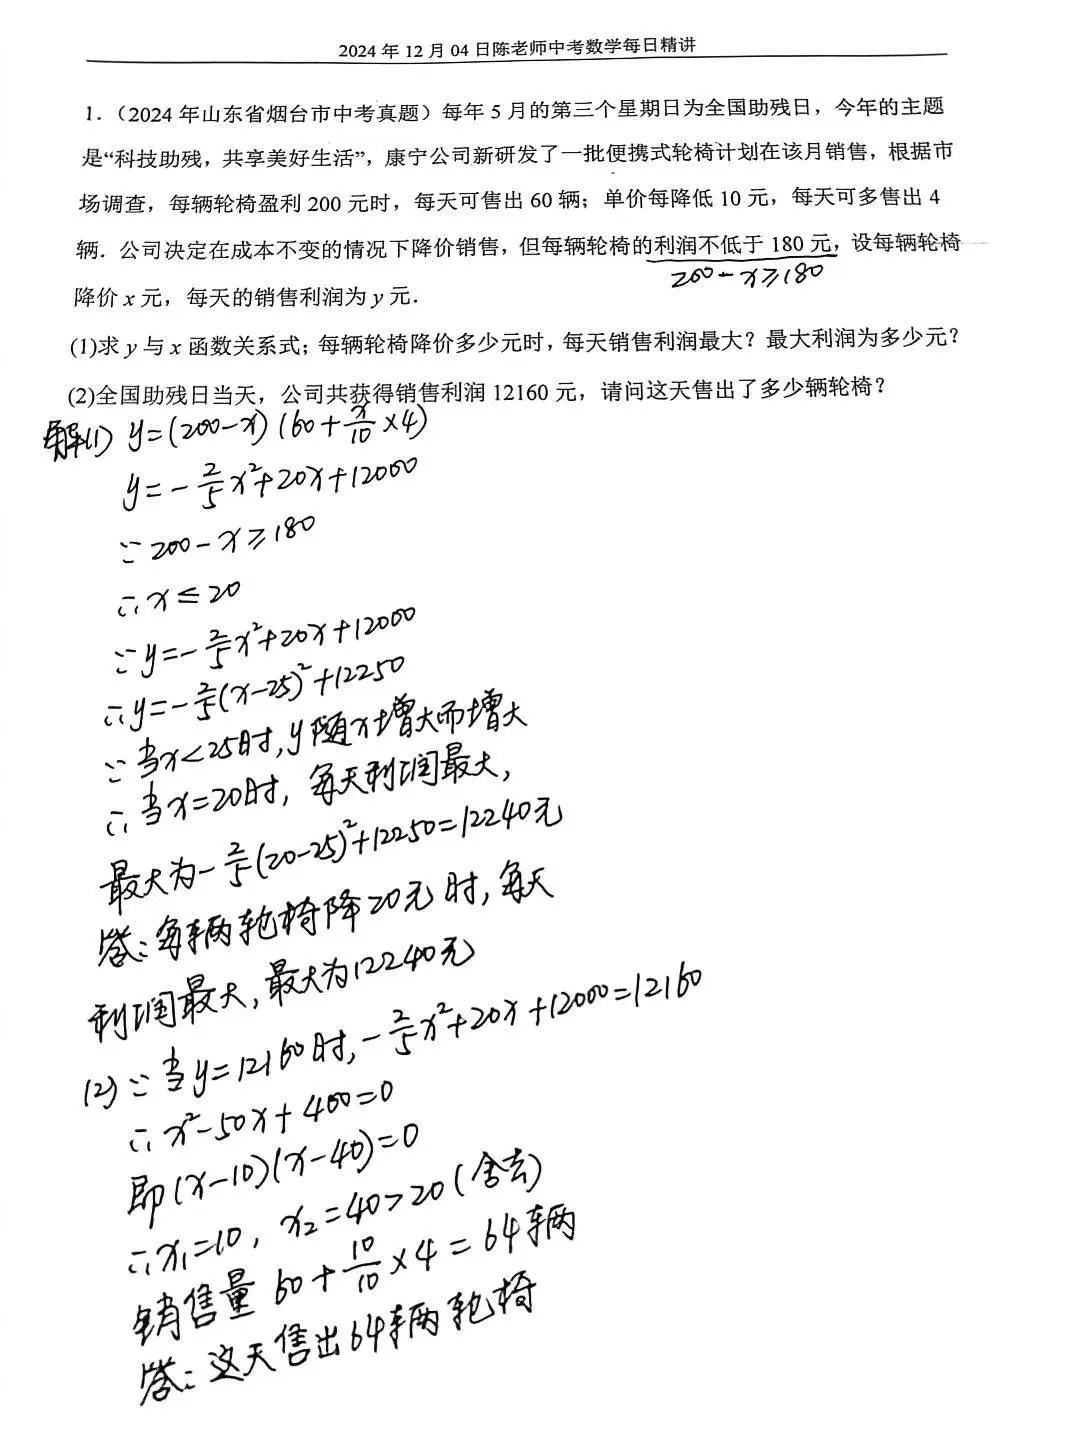 2024 年 12 月 04 日陈老师中考数学每日精讲
1.（2024 年山东省烟台市中考真题）每年 5 月的第三个星期日为全国助残日，今年的主题
是“科技助残，共享美好生活”，康宁公司新研发了一批便携式轮椅计划在该月销售，根据市
场调查，每辆轮椅盈利 200 元时，每天可售出 60 辆；单价每降低 10 元，每天可多售出 4
辆．公司决定在成本不变的情况下降价销售，但每辆轮椅的利润不低于 180 元，设每辆轮椅
200－x≥180
降价 x 元，每天的销售利润为 y 元．
(1)求 y 与 x 函数关系式；每辆轮椅降价多少元时，每天销售利润最大？最大利润为多少元？
(2)全国助残日当天，公司共获得销售利润 12160 元，请问这天售出了多少辆轮椅？
解(1) y=(200－x)(60+x/10×4)
y=－2/5x²+20x+12000
∵200－x≥180
∴x≤20
∵y=－2/5x²+20x+12000
∴y=－2/5(x－25)²+12250
∵当x<25时,y随x增大而增大
∴当x=20时，每天利润最大,
最大为－2/5(20-25)²+12250=12240元
答:每辆轮椅降20元时,每天
利润最大,最大为12240元
(2)∵当y=12160时,－2/5x²+20x+12000=12160
∴x²-50x+400=0
即(x-10)(x-40)=0
∴x₁=10，x₂=40>20(舍去)
销售量 60+10/10×4=64辆
答:这天售出64辆轮椅